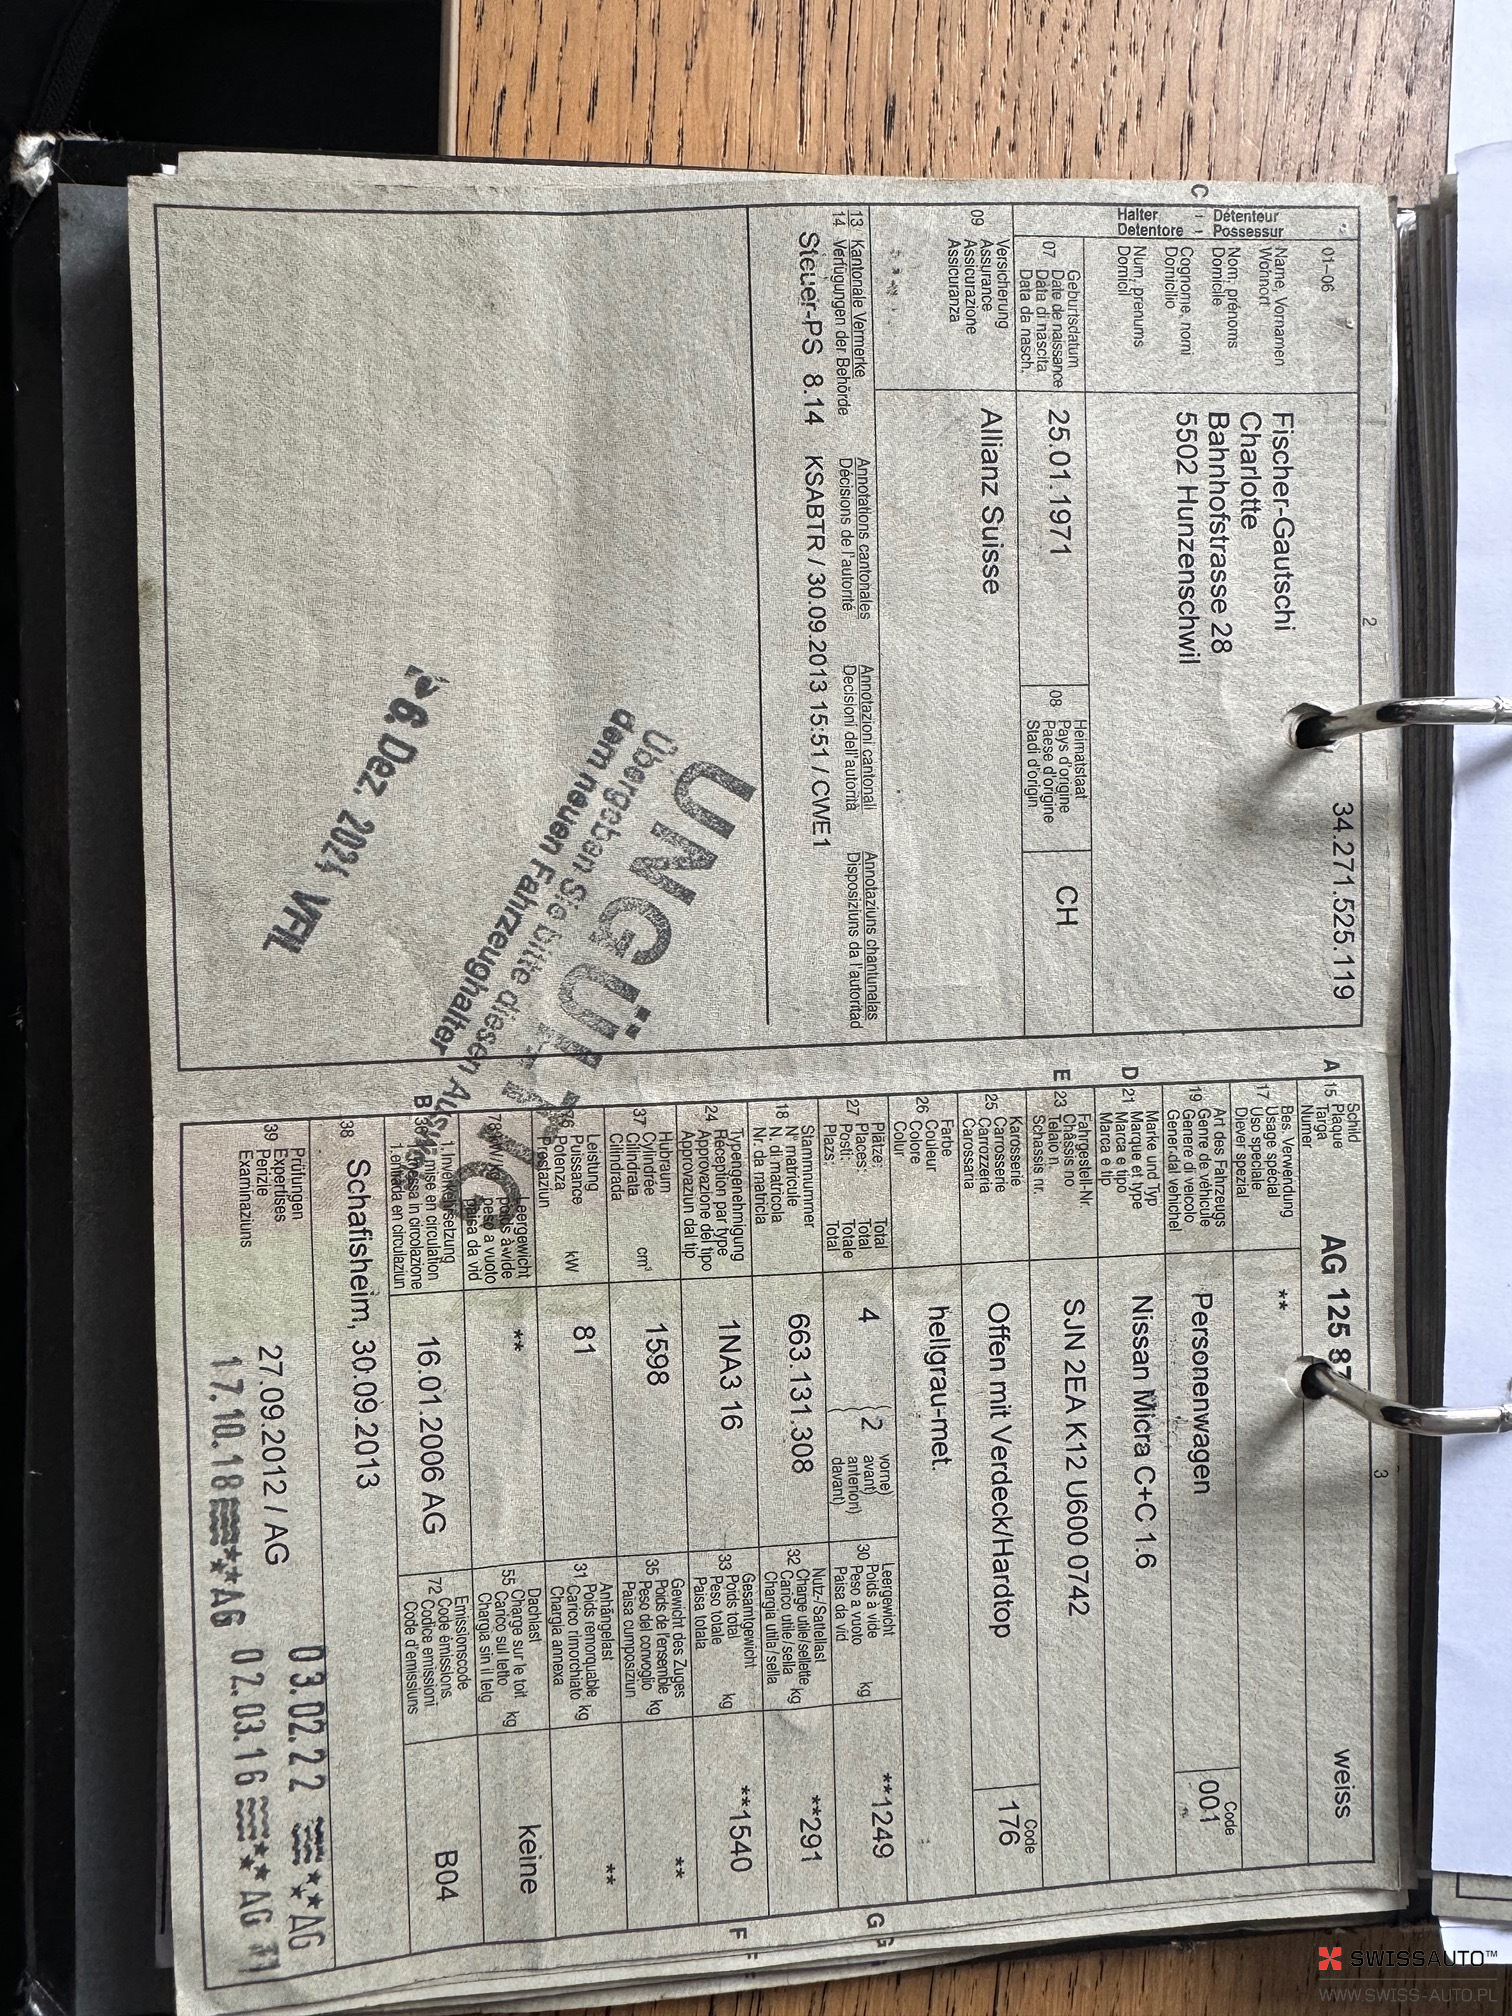 2
C
Détenteur
Possessur
Halter
Detentore
01–06
Name, Vornamen
Wohnort
Nom, prénoms
Domicile
Cognome, nomi
Domicilio
Num, prenums
Domicil
34.271.525.119
Fischer-Gautschi
Charlotte
Bahnhofstrasse 28
5502 Hunzenschwil
07
Geburtsdatum
Date de naissance
Data di nascita
Data da nasch.
25.01.1971
08
Heimatstaat
Pays d'origine
Paese d'origine
Stadi d'origin
CH
09
Versicherung
Assurance
Assicurazione
Assicuranza
Allianz Suisse
13 Kantonale Vermerke Annotations cantonales Annotazioni cantonali Annotaziuns chantunalas
14 Verfügungen der Behörde Décisions de l'autorité Decisioni dell'autorità Disposiziuns da l'autoritad
Steuer-PS 8.14 KSABTR / 30.09.2013 15:51 / CWE1
UNGÜLTIG
Übergeben Sie bitte diesen Ausweis
dem neuen Fahrzeughalter
6. Dez. 2024 VFIL
3
A 15
Schild
Plaque
Targa
Numer
AG 125 87
weiss
17
Bes. Verwendung
Usage spécial
Uso speciale
Diever spezial
**
19
Art des Fahrzeugs
Genre de véhicule
Genere di veicolo
Gener dal vehichel
Personenwagen
Code
001
D 21
Marke und Typ
Marque et type
Marca e tipo
Marca e tip
Nissan Micra C+C 1.6
E 23
Fahrgestell-Nr.
Châssis no
Telaio n.
Schassis nr.
SJN 2EA K12 U600 0742
25
Karosserie
Carrosserie
Carrozzeria
Carossaria
Offen mit Verdeck/Hardtop
Code
176
26
Farbe
Couleur
Colore
Colur
hellgrau-met.
27
Plätze: Total
Places: Total
Posti: Totale
Plazs: Total
4
2
vorne)
avant)
anteriori)
davant)
30
Leergewicht
Poids à vide
Peso a vuoto
Paisa da vid
kg
**1249
G
18
Stammnummer
N° matricule
N. di matricola
Nr. da matricla
663.131.308
32
Nutz-/Sattellast
Charge utile/sellette
Carico utile/sella
Chargia utila/sella
kg
**291
24
Typengenehmigung
Réception par type
Approvazione del tipo
Approvaziun dal tip
1NA3 16
33
Gesamtgewicht
Poids total
Peso totale
Paisa totala
kg
**1540
F
37
Hubraum
Cylindrée
Cilindrata
Cilindrada
cm³
1598
35
Gewicht des Zuges
Poids de l'ensemble
Peso del convoglio
Paisa cumposiziun
kg
**
76
Leistung
Puissance
Potenza
Prestaziun
kW
81
31
Anhängelast
Poids remorquable
Carico rimorchiato
Chargia annexa
kg
**
78
Leergewicht
poids à vide
peso a vuoto
paisa da vid
**
55
Dachlast
Charge sur le toit
Carico sul tetto
Chargia sin il tetg
kg
keine
B 36
1. Inverkehrsetzung
1re mise en circulation
1. messa in circolazione
1. entrada en circulaziun
16.01.2006 AG
72
Emissionscode
Code émissions
Codice emissioni
Code d'emissiuns
B04
38
Schafisheim, 30.09.2013
39
Prüfungen
Expertises
Perizie
Examinaziuns
27.09.2012 / AG
03.02.22 AG
17.10.18 AG
02.03.16 AG 11
SWISSAUTO™
WWW.SWISS-AUTO.PL